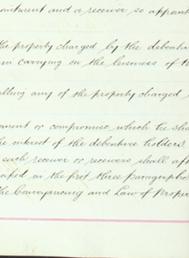 ointment and a receiver so appoint
the property charged by the debentur
on carrying on the business of th
elling any of the property charged
ement or compromise which he sha
the interest of the debenture holders
such receiver or receivers shall aft
in the first three paragraphs
the Conveyancing and Law of Proper